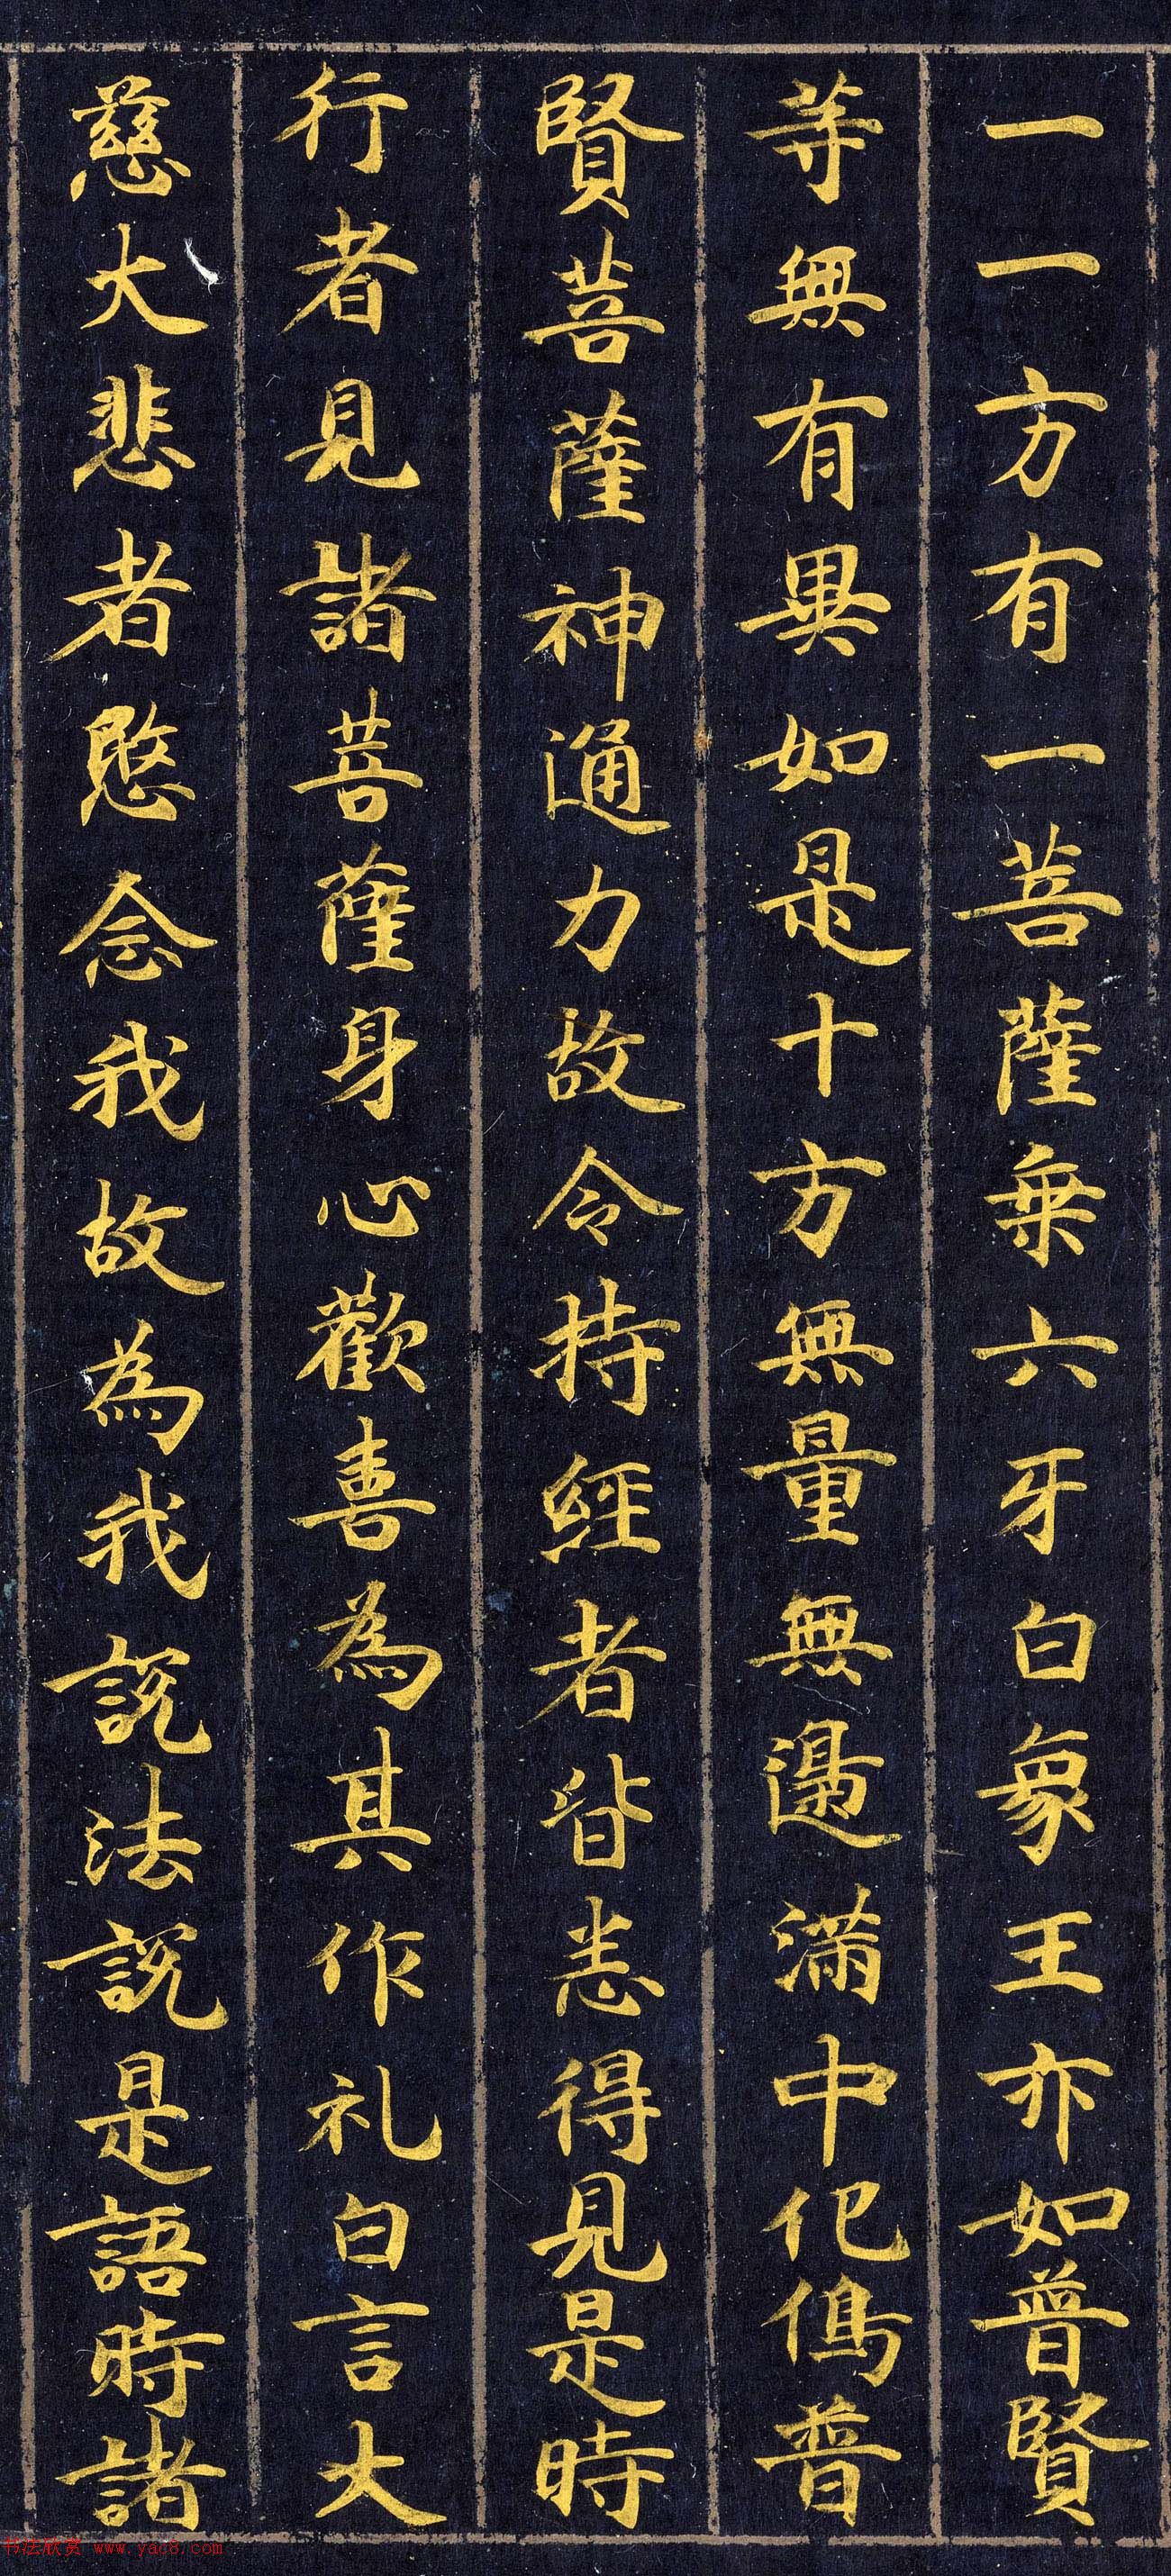 一一方有一菩薩乗六牙白象王亦如普賢
等無有異如是十方無量無邊滿中化像普
賢菩薩神通力故令持經者皆悉得見是時
行者見諸菩薩身心歡喜為其作礼白言大
慈大悲者愍念我故為我説法説是語時諸
书法欣赏 www.yac8.com